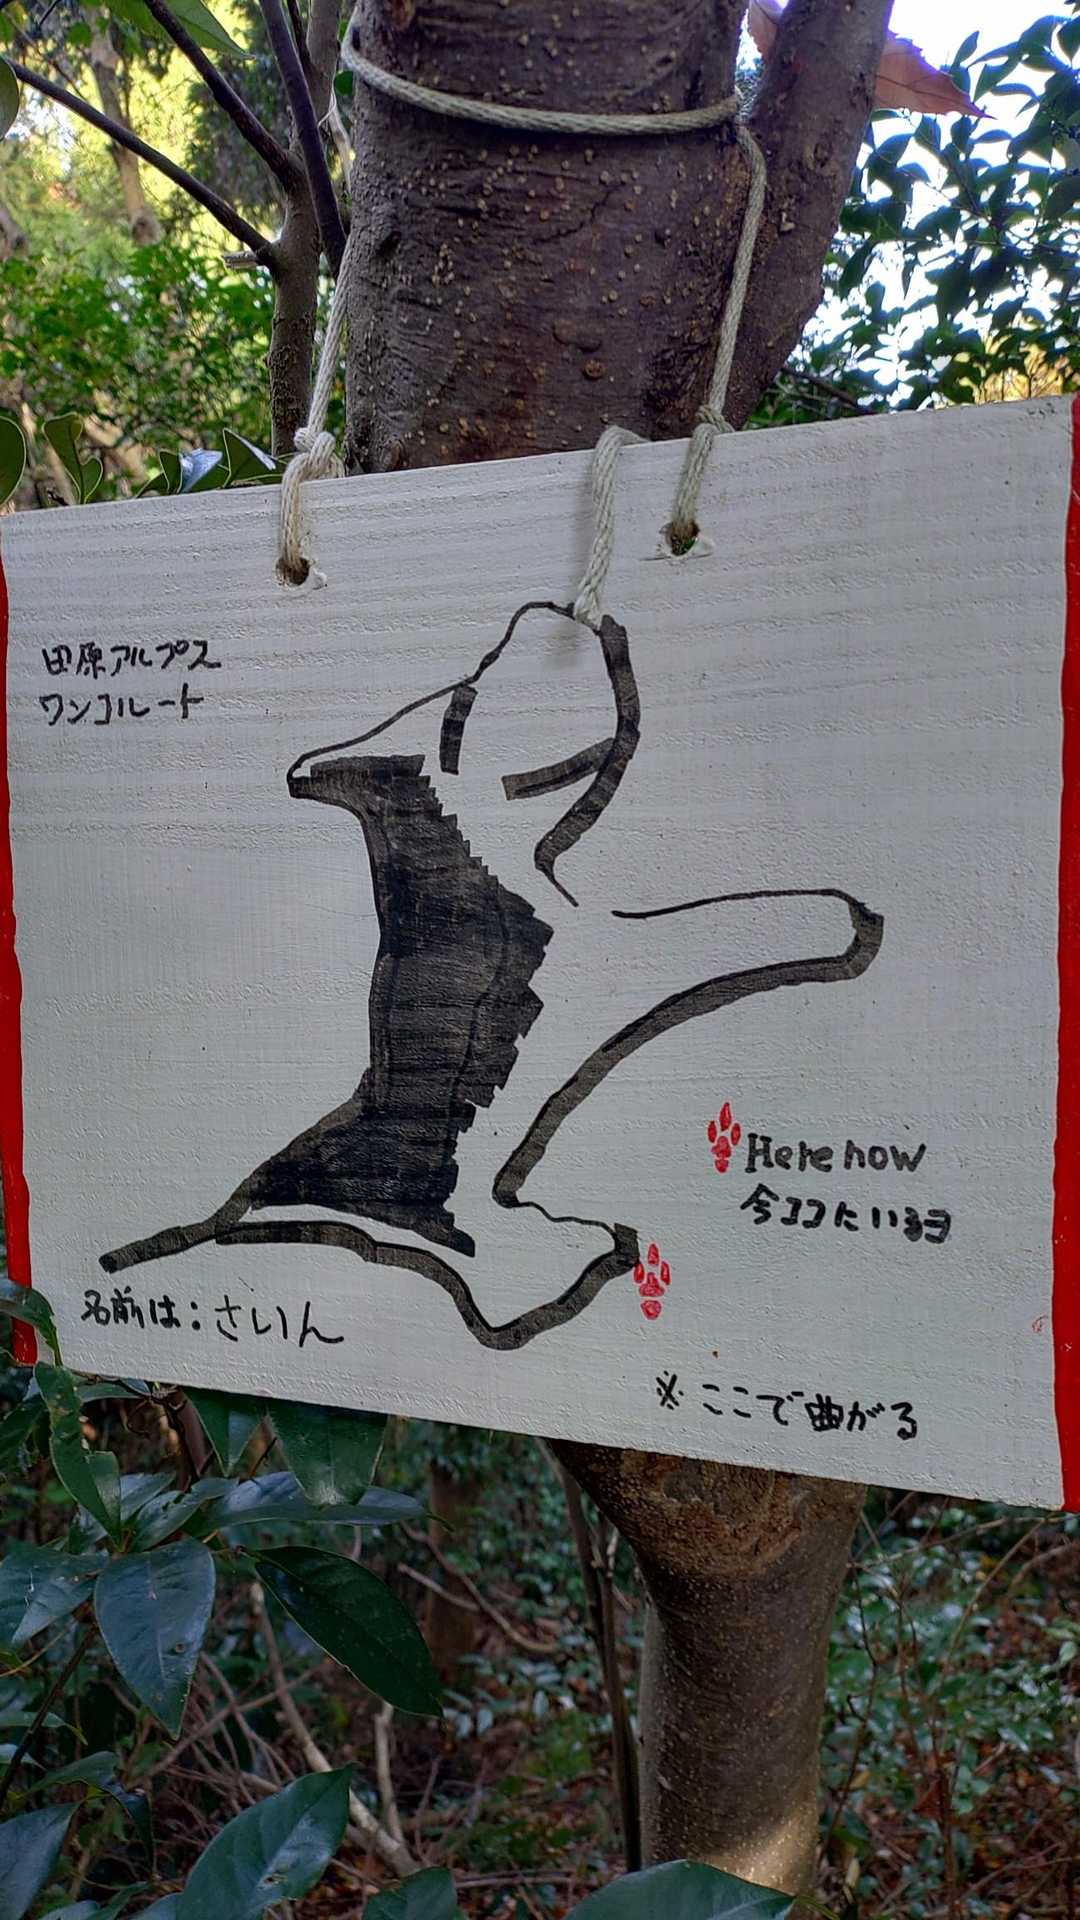 田原アルプス
ワンコルート
Here now
今ココにいるヨ
名前は:さいん
※ここで曲がる